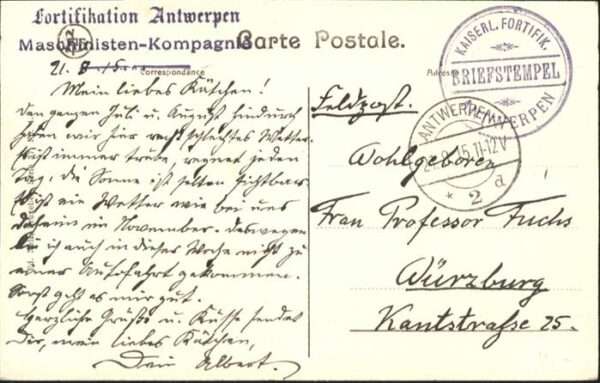 Fortifikation Antwerpen
Maschinisten-Kompagnie
Carte Postale.
Correspondance
21. 8.
Mein liebes Käschen!
Den ganzen Juli u. August hindurch
haben wir hier recht schlechtes Wetter.
Es ist immer trübe, regnet jeden
Tag, die Sonne ist selten sichtbar.
Es ist ein Wetter wie bei uns
daheim im November. Deswegen
bin ich auch in dieser Woche nicht zu
einer Autofahrt gekommen.
Sonst geht es mir gut.
Herzliche Grüße u. Küsse sendet
Dir, mein liebes Käschen,
Dein Albert.
KAISERL. FORTIFIK.
BRIEFSTEMPEL
ANTWERPEN
ANTWERPEN
15. 11-12V
* 2 d
Feldpost.
Wohlgeboren
Frau Professor Fuchs
Würzburg
Kantstraße 25.